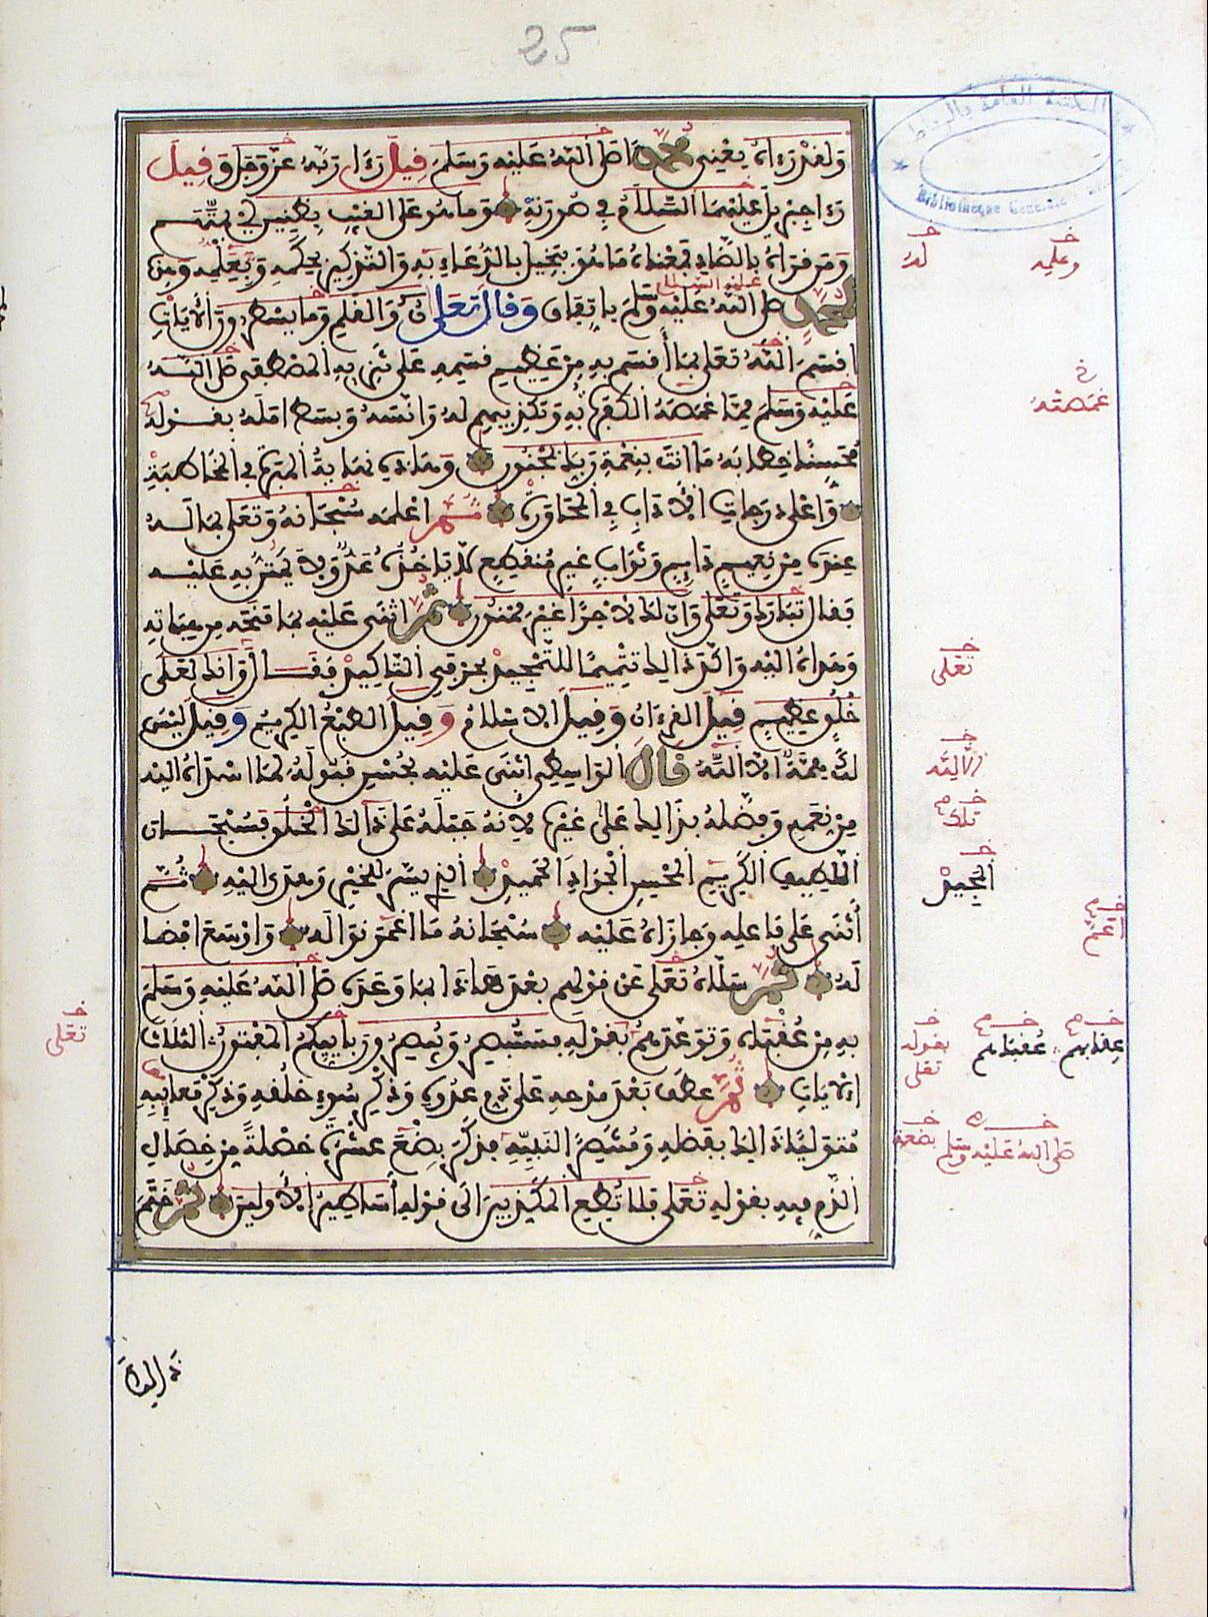 25
وَلَقَدْ رَءَاهُ يعني محمدا صلى الله عليه وسلم قيل رَءَا ربه عز وجل وقيل
رءا جبريل عليهما السلام في صورته وما هو على الغيب بظنين أي بمتهم
ومن قرأه بالضاد فمعناه ما هو ببخيل بالدعاء به والتذكير بحكمه وبعلمه وهذه
لمحمد صلى الله عليه وسلم باتفاق وقال تعلى ن والقلم وما يسطرون الأيات
اقسم الله تعلى بما أقسم به من عظيم قسمه على تنزيه المصطفى صلى الله
عليه وسلم مما غمصه الكفرة به وتكذيبهم له وانسه وبسط امله بقوله
محسنا خطابه ما انت بنعمة ربك بمجنون وهذه نهاية المبرة في المخاطبة
وأعلى درجات الأداب في المحاورة ثم اعلمه سبحانه وتعلى بما له
عنده من نعيم دايم وثواب غير منقطع لا ياخذه عد ولا يمتن به عليه
فقال تبارك وتعلى وان لك لاجرا غير ممنون ثم اثنى عليه بما منحه من هباته
وهداه اليه واكد ذالك تتميما للتمجيد بحرفي التاكيد فقال وانك لعلى
خلق عظيم قيل القرءان وقيل الاسلام وقيل الطبع الكريم وقيل ليس
لك همة الا الله قال الواسطي اثنى عليه بحسن قبوله لما اسداه اليه
من نعمه وفضله بذالك على غيره لانه جبله على ذالك الخلق فسبحان
اللطيف الكريم المحسن الجواد الحميد الذي يسر للخير وهدى اليه ثم
أثنى على فاعله وجازاه عليه سبحانه ما اغمر نواله واوسع افضا
له ثم سلاه تعلى عن قولهم بعد هاذا بما وعده صلى الله عليه وسلم
به من عقابهم وتوعدهم بقوله فستبصر ويبصرون بأييكم المفتون الثلاث
الايات ثم عطف بعد مدحه على ذم عدوه وذكر سوء خلقه وذكر معايبه
متوليا ذالك بفضله ومنتصرا لنبيه فذكر بضع عشرة خصلة من خصال
الذم فيه بقوله تعلى فلا تطع المكذبين الى قوله أساطير الاولين ثم ختم
عليه السلام
وعلمه
له
غمصته
تعلى
إلا الله
تلك
المجيد
أعم
عقابهم
عقباهم
بقوله تعلى
تعلى
صلى الله عليه وسلم
بضعة
ذالك
المكتبة العامة بالرباط
Bibliothèque Générale